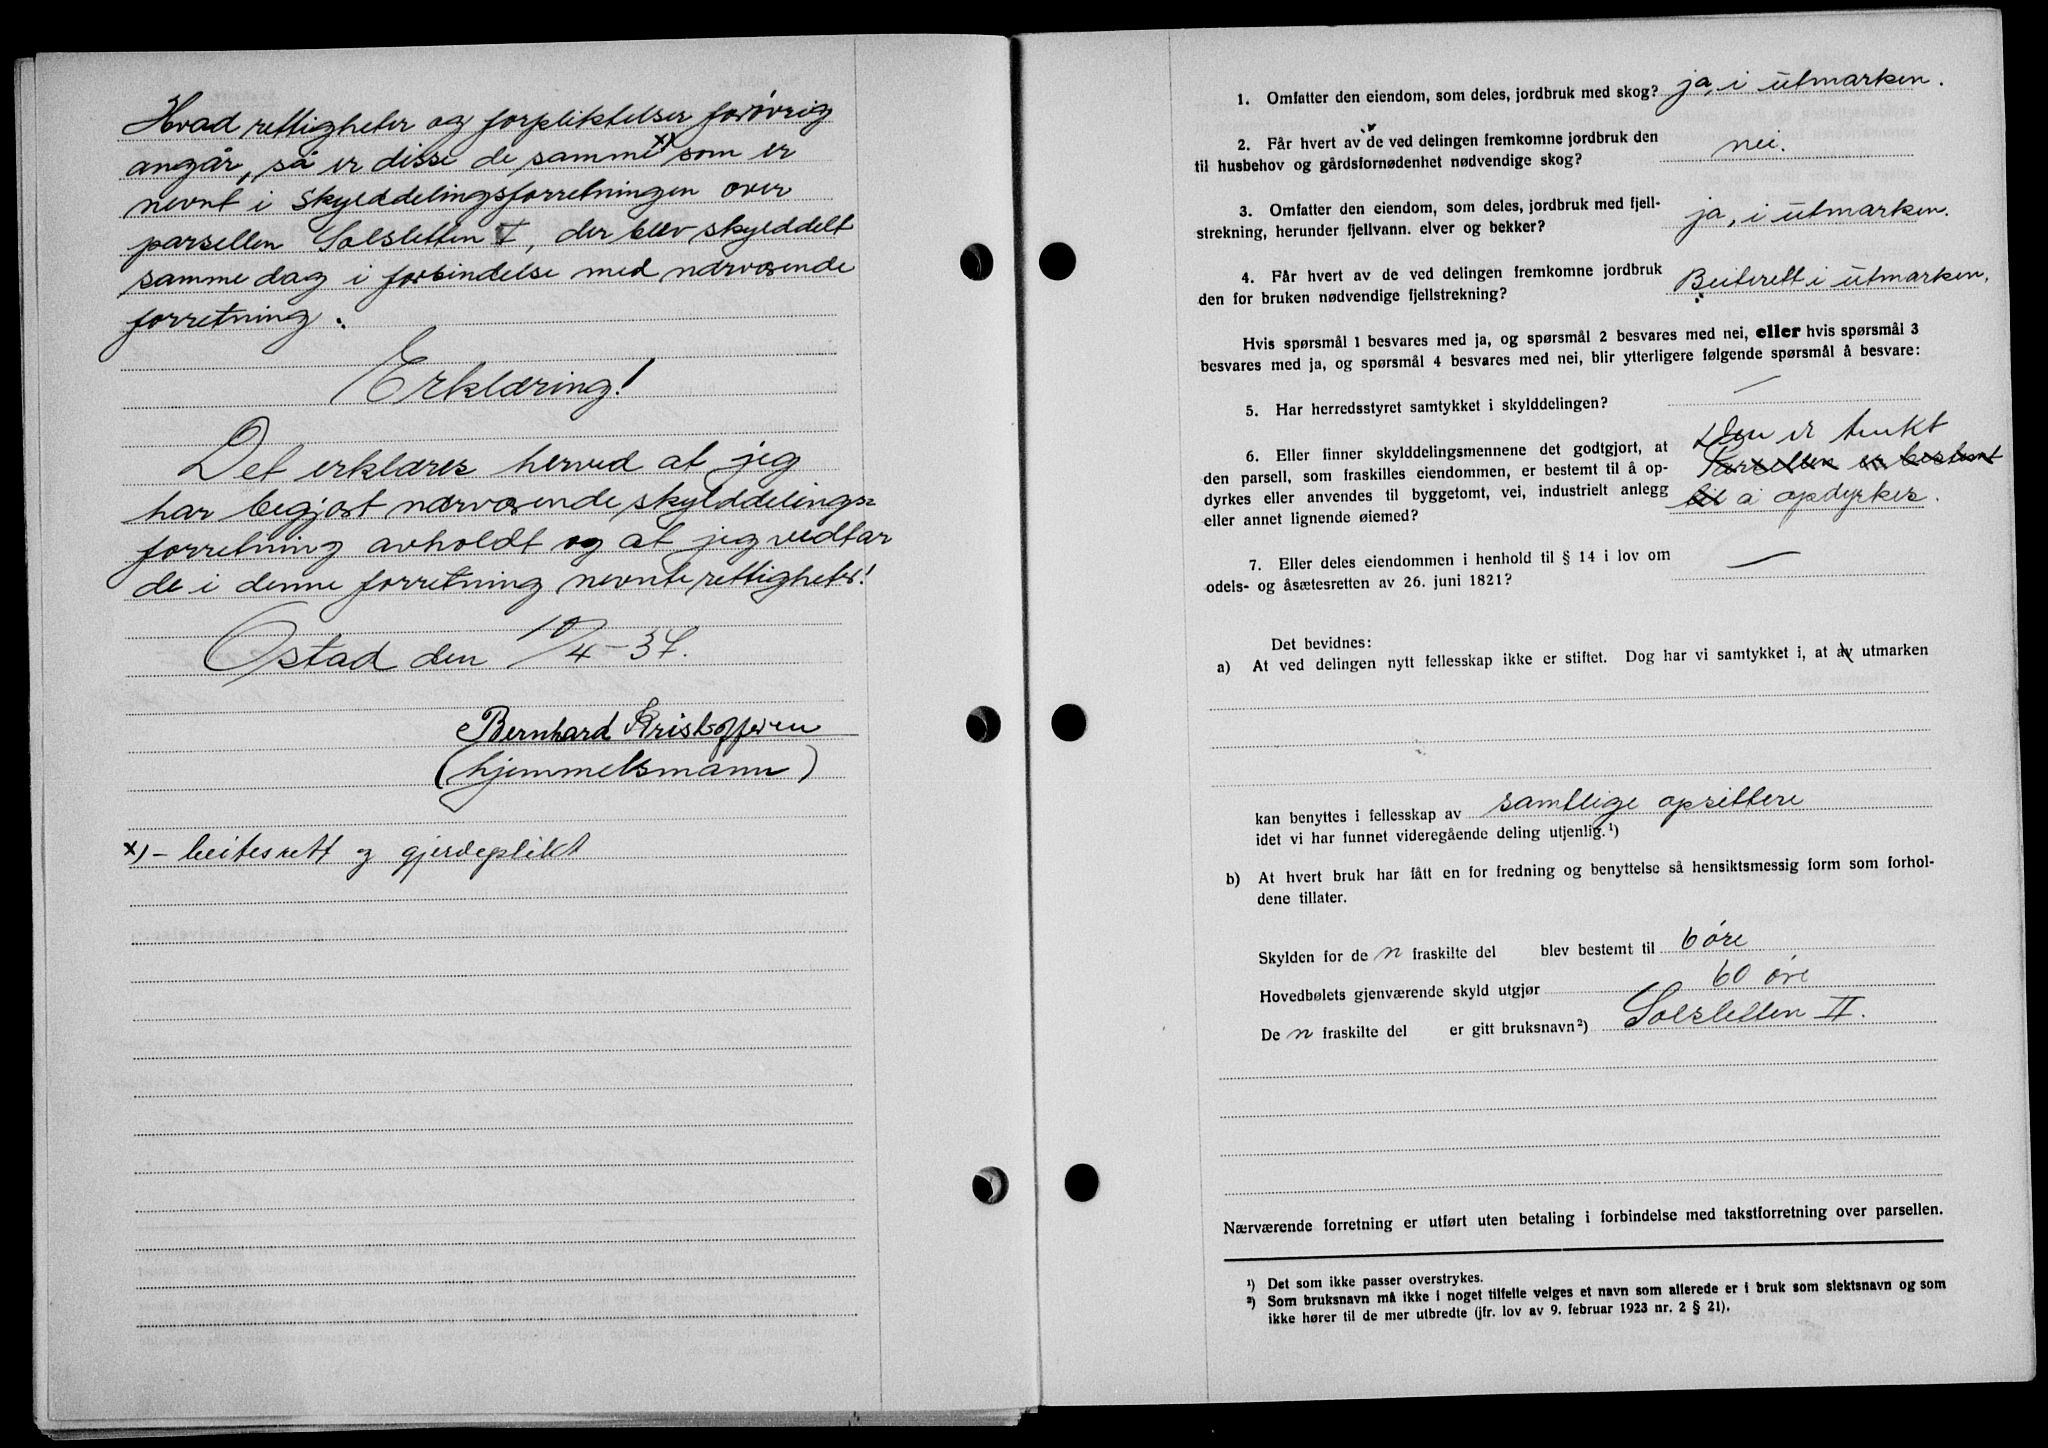 Hvad rettigheter og forpliktelser forøvrig
angår, så er disse de samme x) som er
nevnt i skylddelingsforretningen over
parsellen Solsletten I, der blev skylddelt
samme dag i forbindelse med nærværende
forretning.
Erklæring!
Det erklæres herved at jeg
har begjært nærværende skylddelings=
forretning avholdt og at jeg vedtar
de i denne forretning nevnte rettigheter!
Ostad den 10/4-37.
Bernhard Kristoffersen
(hjemmelsmann)
x) - beitesrett og gjerdeplikt
1. Omfatter den eiendom, som deles, jordbruk med skog? ja, i utmarken.
2. Får hvert av de ved delingen fremkomne jordbruk den
til husbehov og gårdsfornødenhet nødvendige skog? nei.
3. Omfatter den eiendom, som deles, jordbruk med fjell-
strekning, herunder fjellvann. elver og bekker? ja, i utmarken.
4. Får hvert av de ved delingen fremkomne jordbruk
den for bruken nødvendige fjellstrekning? Beiterett i utmarken.
Hvis spørsmål 1 besvares med ja, og spørsmål 2 besvares med nei, eller hvis spørsmål 3
besvares med ja, og spørsmål 4 besvares med nei, blir ytterligere følgende spørsmål å besvare:
5. Har herredsstyret samtykket i skylddelingen? —
6. Eller finner skylddelingsmennene det godtgjort, at Den er tenkt
den parsell, som fraskilles eiendommen, er bestemt til å op- Parsellen er bestemt
dyrkes eller anvendes til byggetomt, vei, industrielt anlegg til å opdyrkes.
eller annet lignende øiemed?
7. Eller deles eiendommen i henhold til § 14 i lov om
odels- og åsætesretten av 26. juni 1821? —
Det bevidnes:
a) At ved delingen nytt fellesskap ikke er stiftet. Dog har vi samtykket i, at av utmarken
kan benyttes i fellesskap av samtlige opsittere
idet vi har funnet videregående deling utjenlig.¹)
b) At hvert bruk har fått en for fredning og benyttelse så hensiktsmessig form som forhol-
dene tillater.
Skylden for de n fraskilte del blev bestemt til 6 øre
Hovedbølets gjenværende skyld utgjør 60 øre
De n fraskilte del er gitt bruksnavn²) Solsletten II.
Nærværende forretning er utført uten betaling i forbindelse med takstforretning over parsellen.
¹) Det som ikke passer overstrykes.
²) Som bruksnavn må ikke i noget tilfelle velges et navn som allerede er i bruk som slektsnavn og som
ikke hører til de mer utbredte (jfr. lov av 9. februar 1923 nr. 2 § 21).